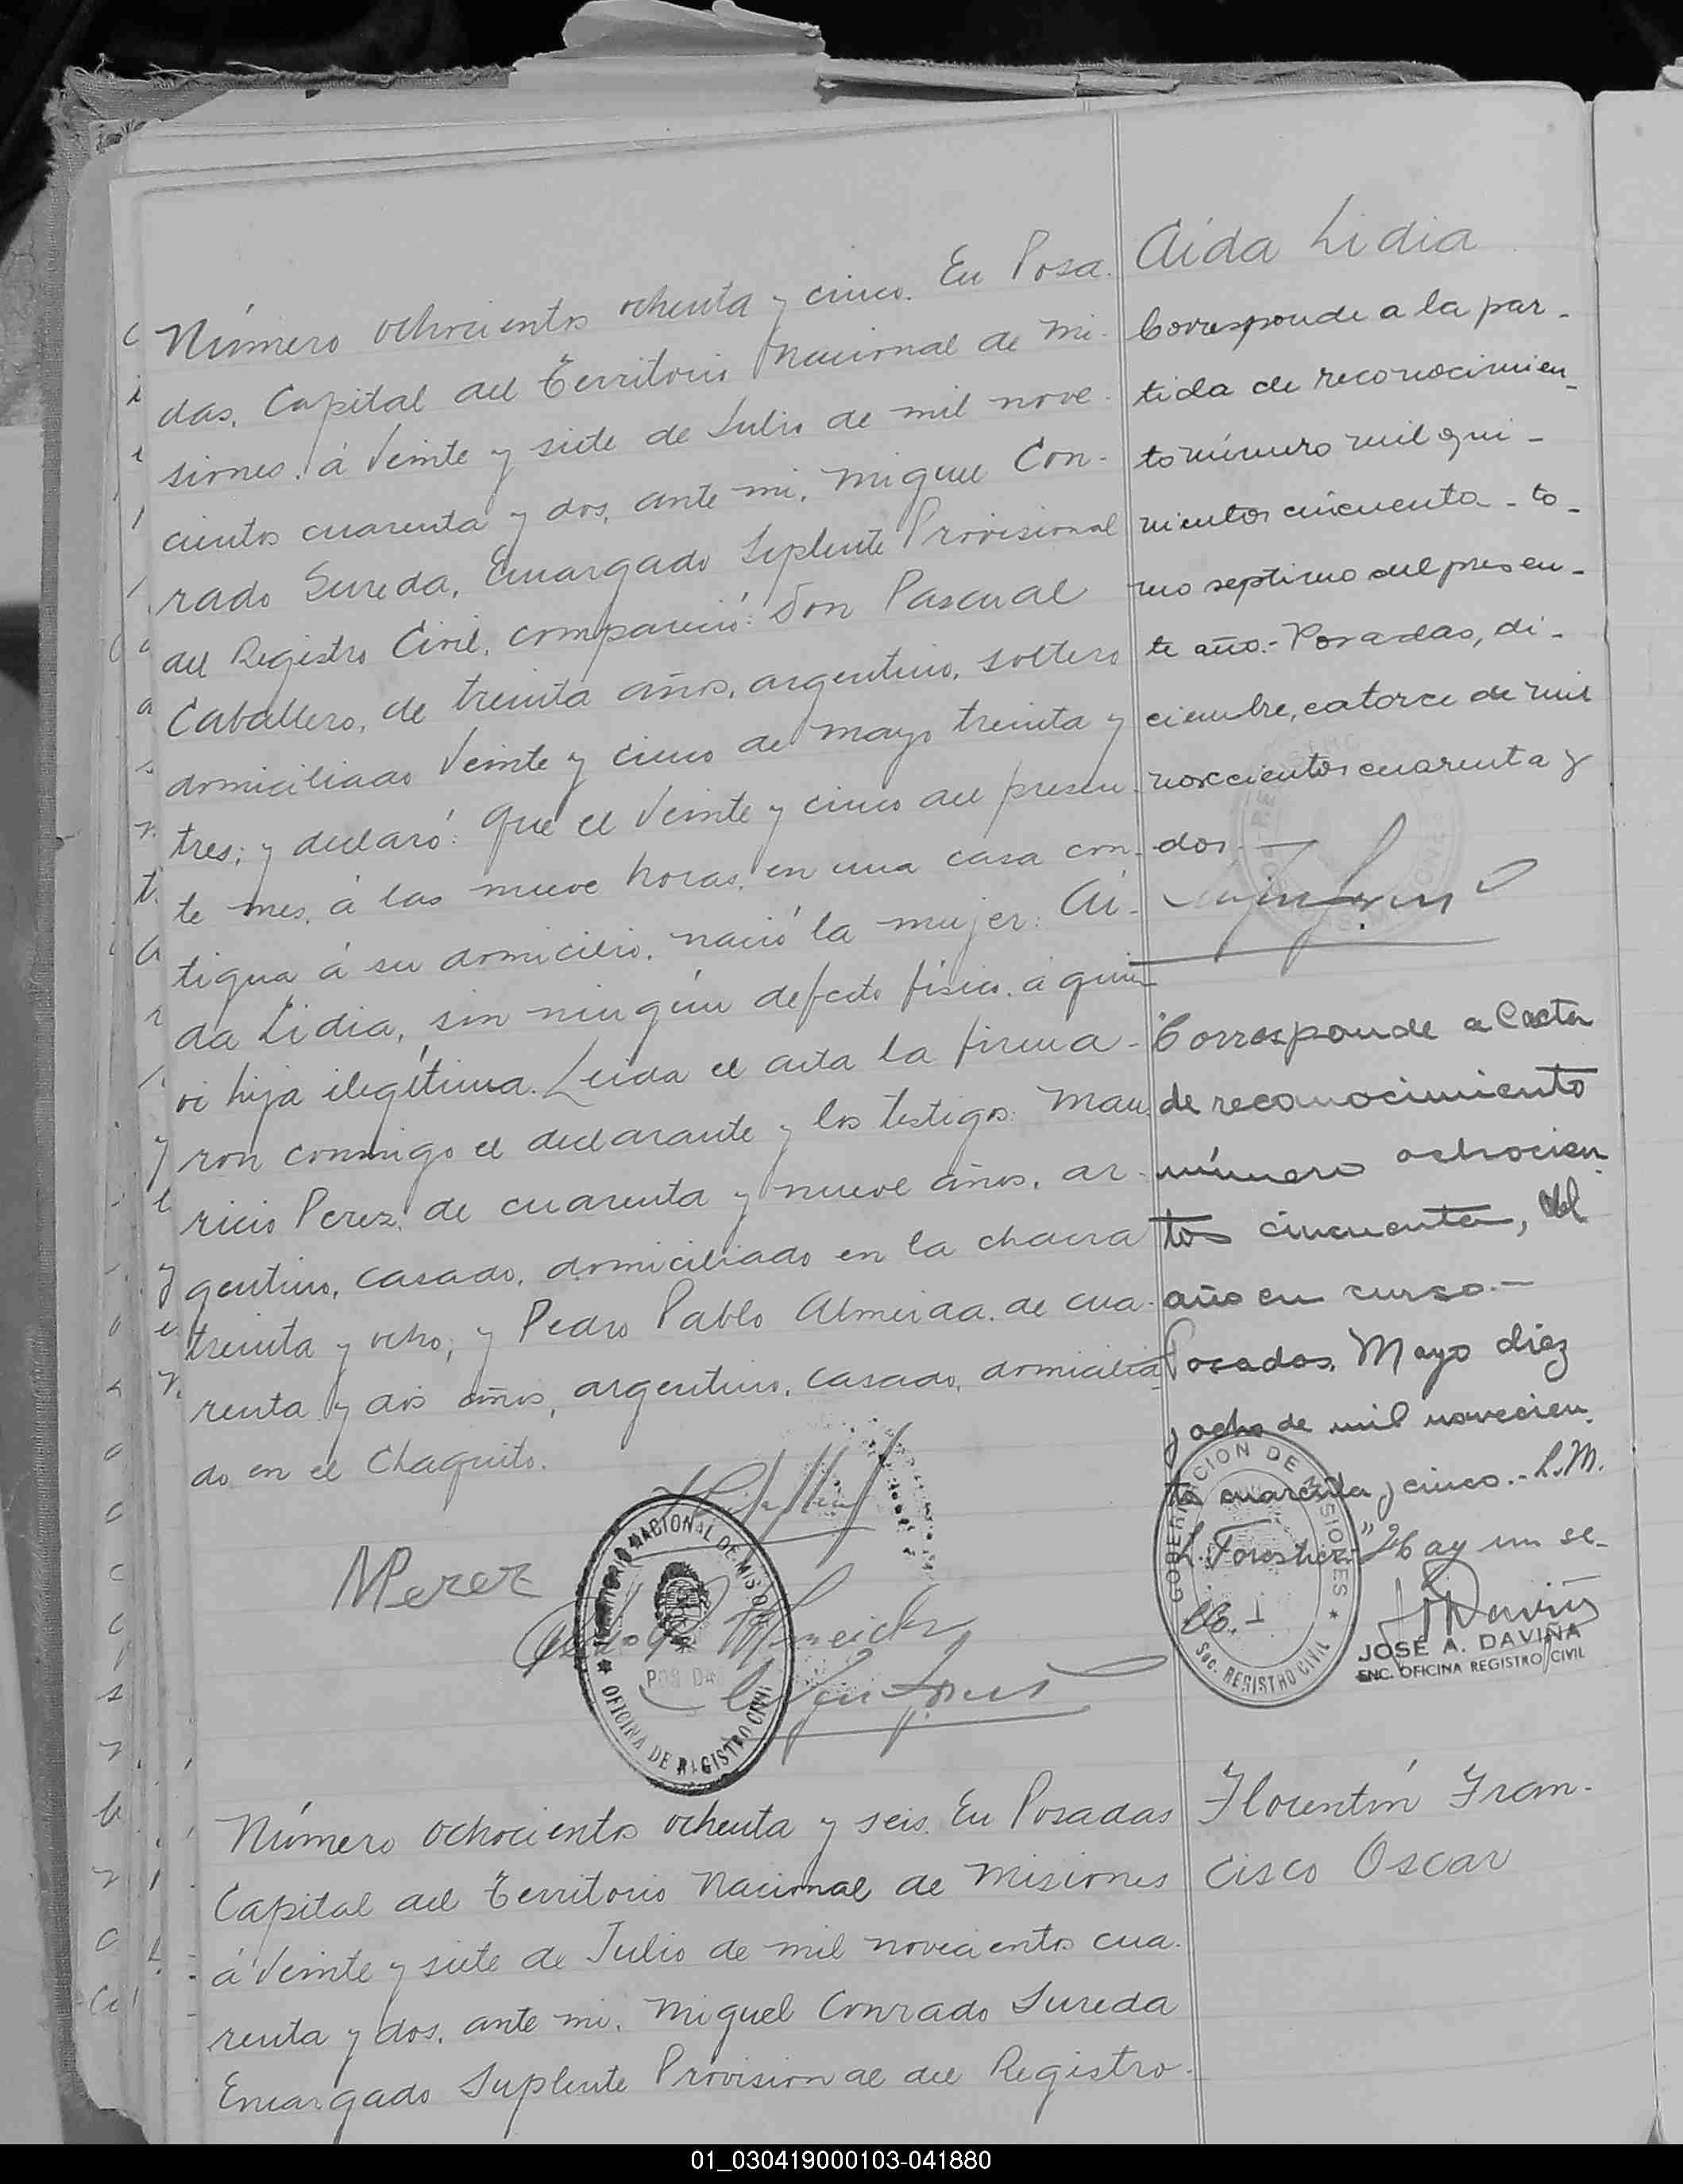 Número ochocientos ochenta y cinco. En Posa-
das, Capital del Territorio Nacional de Mi-
siones, á veinte y siete de Julio de mil nove-
cientos cuarenta y dos, ante mi, Miguel Con-
rado Sureda, Encargado Suplente Provisional
del Registro Civil, compareció: Don Pascual
Caballero, de treinta años, argentino, soltero
domiciliado Veinte y cinco de Mayo treinta y
tres; y declaró: Que el veinte y cinco del presen-
te mes, á las nueve horas, en una casa con-
tigua á su domicilio, nació la mujer: Ai-
da Lidia, sin ningún defecto físico, á quien
vi hija ilegítima. Leida el acta la firma-
ron conmigo el declarante y los testigos: Mau-
ricio Perez, de cuarenta y nueve años, ar-
gentino, casado, domiciliado en la chacra
treinta y ocho; y Pedro Pablo Almeida, de cua-
renta y dos años, argentino, casado, domicilia-
do en el Chaquito.
MPerez
TERRITORIO NACIONAL DE MISIONES
POSADAS
OFICINA DE REGISTRO CIVIL
Aida Lidia
Corresponde a la par-
tida de reconocimien-
to número mil qui-
nientos cincuenta - to-
mo septimo del presen-
te año.- Posadas, di-
ciembre, catorce de mil
novecientos cuarenta y
dos.-
"Corresponde al acta
de reconocimiento
número ochocien-
tos cincuenta, del
año en curso.-
Posadas, Mayo diez
y ocho de mil novecien-
tos cuarenta y cinco.- L.M.
Hay un se-
llo.-
GOBERNACION DE MISIONES
Sec. REGISTRO CIVIL
JOSE A. DAVIÑA
ENC. OFICINA REGISTRO CIVIL
Número ochocientos ochenta y seis. En Posadas
Capital del Territorio Nacional de Misiones
á veinte y siete de Julio de mil novecientos cua-
renta y dos, ante mi, Miguel Conrado Sureda
Encargado Suplente Provisional del Registro
Florentín Fran-
cisco Oscar
01_030419000103-041880